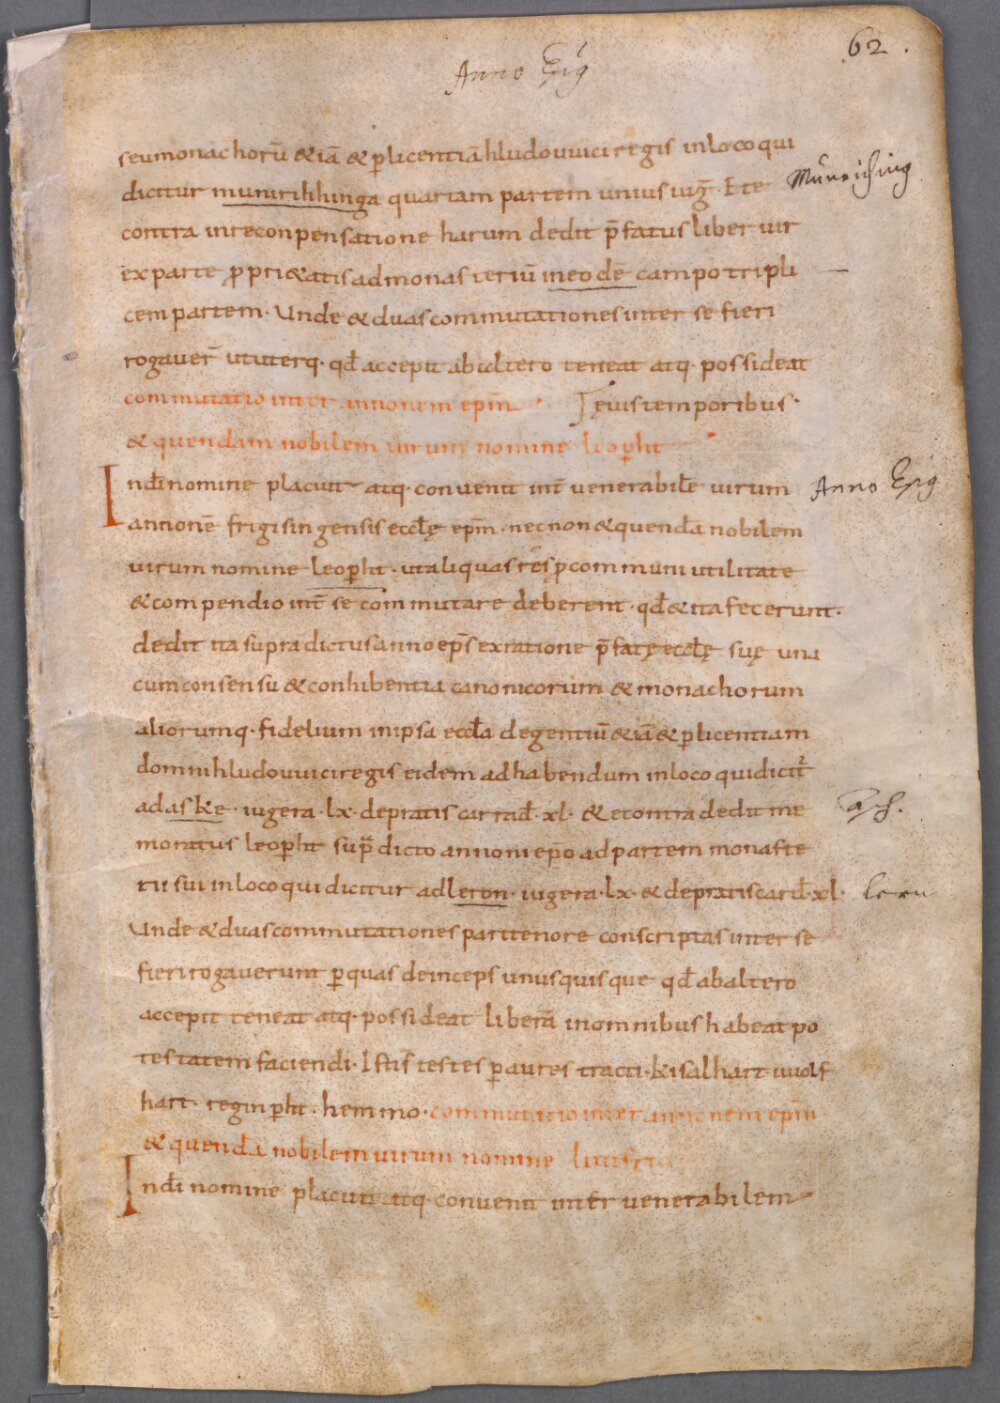 62.
Anno Epĩg
seu monachorũ &iã & ꝑlicentiã hludouuici regis inloco qui
dicitur munirihhinga quartam partem unius iug̃. Ete Münriching
contra inreconpensatione harum dedit p̃fatus liber uir
exparte ꝓpri&atis ad monasteriũ ineodẽ campo tripli
cem partem. Unde & duas commutationes inter se fieri
rogauer̃ ututerq. qđ accepit abaltero teneat atq. possideat
commutatio inter annonem ep̃m eius temporibus.
& quendam nobilem uirum nomine leoꝑht
Indĩ nomine placuit atq. conuenit int̃ uenerabilẽ uirum Anno Epĩg
annonẽ frigisingensis eccłę ep̃m. necnon & quendã nobilem
uirum nomine leoꝑht. utaliquas res ꝓcommuni utilitate
& compendio int̃ se commutare deberent. qđ & ita fecerunt.
dedit ita supradictus anno ep̃s exratione p̃fatę eccłę suę una
cum consensu & conhibentia canonicorum & monachorum
aliorumq. fidelium inipsa eccła degentiũ &iã & ꝑlicentiam
domni hludouuici regis eidem adhabendum inloco quidicit̃
adaske. iugera. lx. depratis carrađ. xl. & econtra dedit me Asch.
moratus leoꝑht sup̃dicto annoni ep̃o adpartem monaste
rii sui inloco qui dicitur adleron. iugera. lx. & depratis carđ. xl. lern
Unde & duas commutationes pari tenore conscriptas inter se
fieri rogauerunt ꝑquas deinceps unusquisque qđ abaltero
accepit teneat atq. possideat liberã inomnibus habeat po
testatem faciendi. Istis testes ꝑaures tracti. kisalhart uuolf
hart. reginꝑht. hemmo. commutatio inter annonem ep̃m
& quendã nobilem uirum nomine
Indĩ nomine placuit atq. conuenit inter uenerabilem